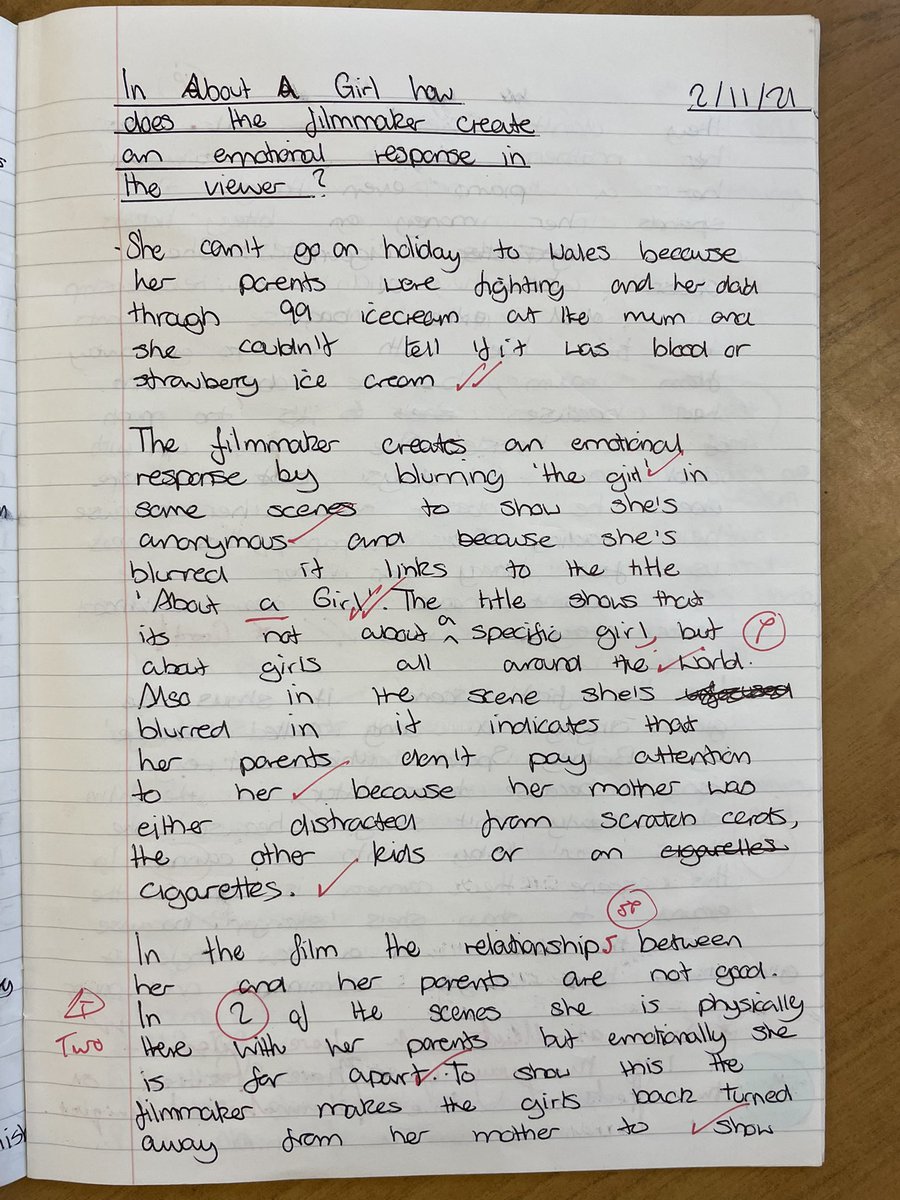 In About A Girl how
2/11/21
does the filmmaker create
an emotional response in
the viewer?
- She can't go on holiday to Wales because
her parents were fighting and her dad
through 99 icecream at the mum and
she couldn't tell if it was blood or
strawberry ice cream
The filmmaker creates an emotional
response by blurring 'the girl' in
some scenes to show she's
anonymous and because she's
blurred it links to the title
'About a Girl'. The title shows that
its not about a specific girl, but P
about girls all around the world.
Also in the scene she's
blurred in it indicates that
her parents don't pay attention
to her because her mother was
either distracted from scratch cards,
the other kids or on cigarettes
cigarettes.
SP
In the film the relationships between
her and her parents are not good.
In 2 of the scenes she is physically
T
Two
there with her parents but emotionally she
is far apart. To show this the
filmmaker makes the girls back turned
away from her mother to show